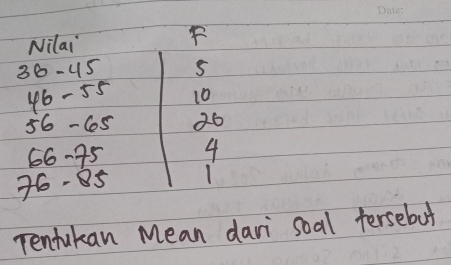 Date:
Nilai F
36-45 5
46-55 10
56-65 20
66-75 4
76-85 1
Tentukan Mean dari soal tersebut